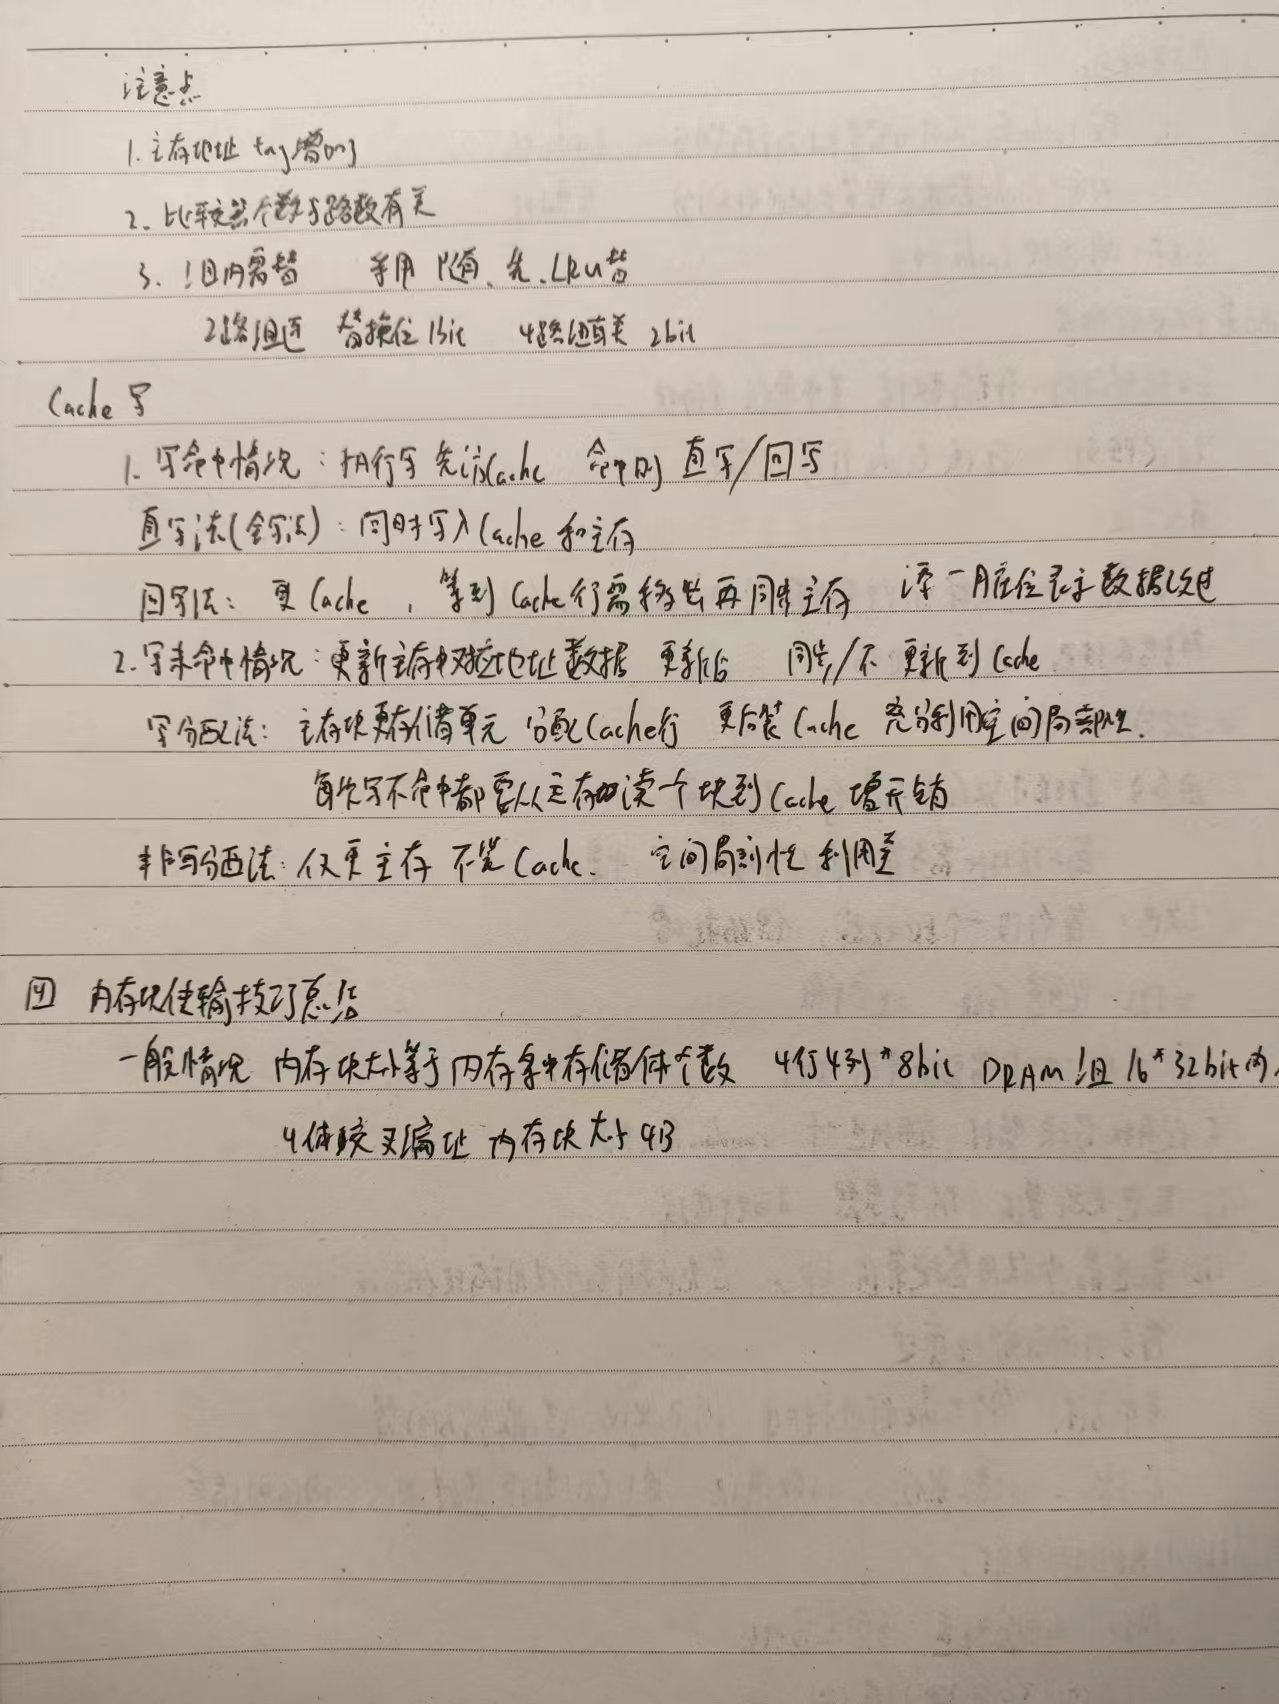 注意点
1. 主存地址 tag增加
2. 比较器个数与路数有关
3. 组内需替 采用 随、先、LRU替
2路组连 替换位 1bit 4路组 2bit
Cache 写
1. 写命中情况：执行写 先访Cache 命中则 直写/回写
直写法(全写法)：同时写入Cache 和主存
回写法：更 Cache ，等到 Cache行需移出 再同步主存 添一脏位表示数据改过
2. 写未命中情况：更新主存中对应地址数据 更新后 同步/不 更新到 Cache
写分配法：主存块更存储单元 分配Cache行 更后装 Cache 充分利用空间局部性.
每次写不命中都要从主存中读一个块到 Cache 增开销
非写分配法：仅更主存 不装 Cache. 空间局部性 利用差
四 内存块传输技巧总结
一般情况 内存块大小等于内存条中存储体个数 4行4列*8bit DRAM 组 16*32bit内
4体交叉编址 内存块大小 4B